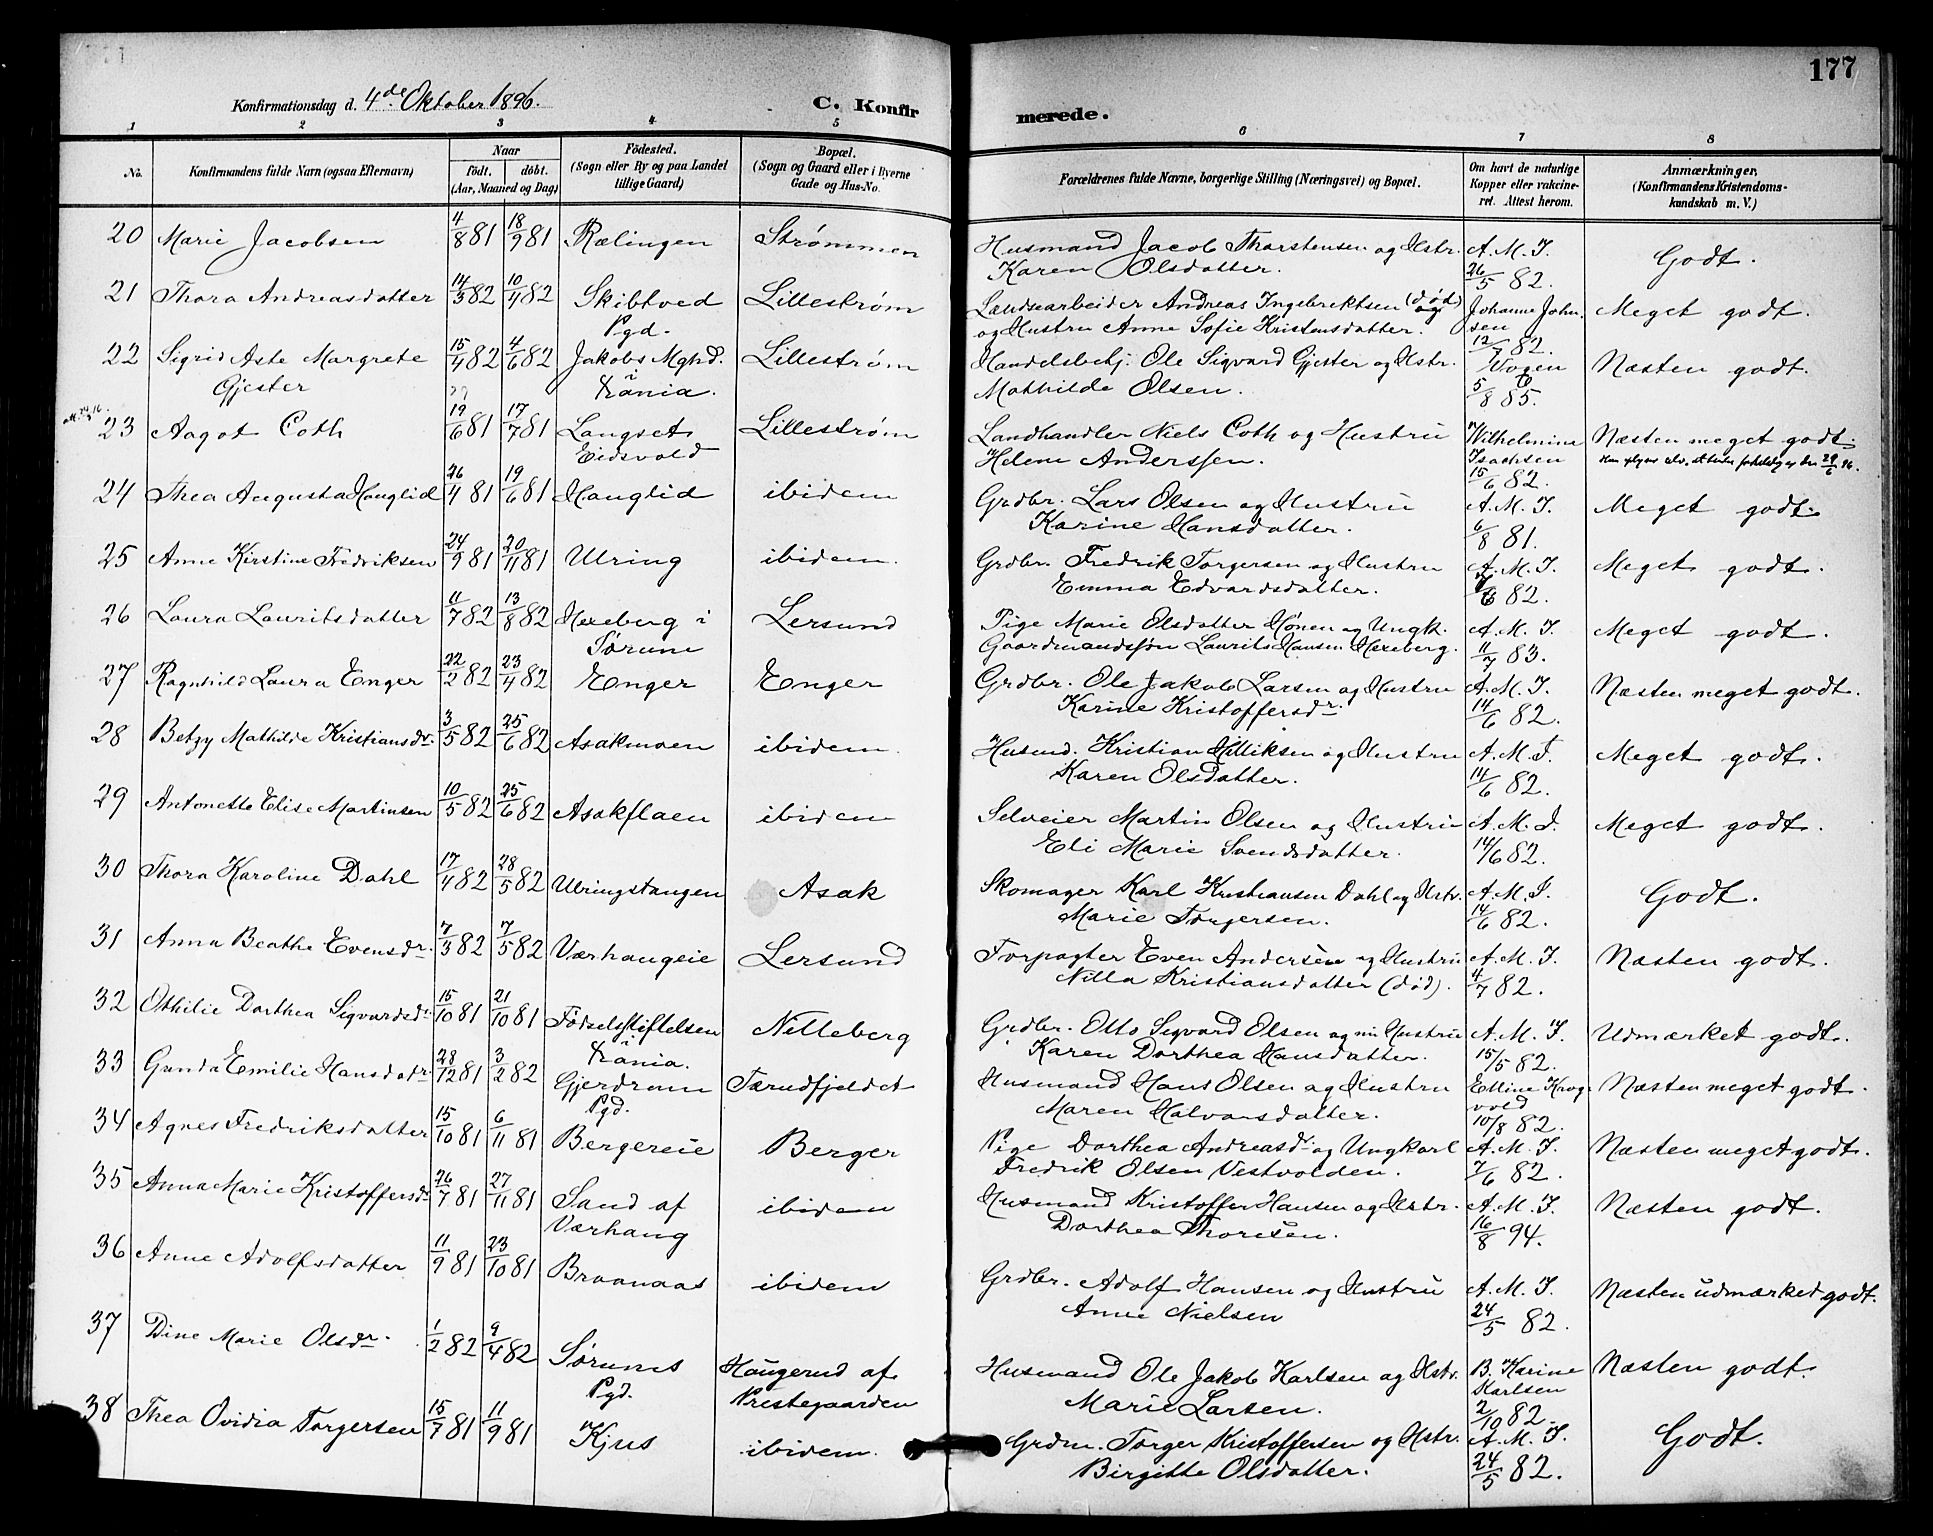 177
Konfirmationsdag d. 4de Oktober 1896.
C. Konfirmerede.
1 2 3 4 5 6 7 8
No. Konfirmandens fulde Navn (ogsaa Efternavn) Naar födt. döbt. (Aar, Maaned og Dag) Födested. (Sogn eller By og paa Landet tillige Gaard) Bopæl. (Sogn og Gaard eller i Byerne Gade og Hus-No. Forældrenes fulde Navne, borgerlige Stilling (Næringsvei) og Bopæl. Om havt de naturlige Kopper eller vakcineret. Attest herom. Anmærkninger, (Konfirmandens Kristendomskundskab m. V.)
20 Marie Jacobsen 4/8 81 18/9 81 Rælingen Strømmen Husmand Jacob Thorstensen og Hstr. A. M. I. Godt.
Karen Olsdatter. 26/5 82.
21 Thora Andreasdatter 14/3 82 10/4 82 Skibtved Lillestrøm Landsearbeider Andreas Ingebrektsen (død) Johanne John- Meget godt.
Pgd. og Hustru Anne Sofie Kristensdatter. sen 12/7 82.
22 Sigrid Aste Margrete 15/4 82 4/6 82 Jakobs Mghd. Lillestrøm Handelsbetj. Ole Sigvard Gjester og Hstr. Vogen Næsten godt.
Gjester i Kränia. Mathilde Olsen. 5/8 85.
23 Aagot Coth 19/6 81 17/7 81 Langset Lillestrøm Landhandler Niels Coth og Hustru Wilhelmine Næsten meget godt.
Eidsvold Helene Anderssen. Isachsen 15/6 82.
24 Thea Augusta Hauglid 26/4 81 19/6 81 Hauglid ibidem Grdbr. Lars Olsen og Hustru A. M. I. Meget godt.
Karine Hansdatter. 6/8 81.
25 Anne Kirstine Fredriksen 24/9 81 20/11 81 Ulring ibidem. Grdbr. Fredrik Torgersen og Hustru A. M. I. Meget godt.
Emma Edvardsdatter. 82.
26 Laura Lauritsdatter 11/7 82 13/8 82 Hexeberg i Lersund Pige Marie Olsdatter Mønen og Ungk. A. M. I. Meget godt.
Sørum Gaardmandssøn Laurits Hansen Hexeberg. 11/7 83.
27 Ragnhild Laura Enger 22/2 82 23/4 82 Enger Enger Grdbr. Ole Jakob Larsen og Hustru A. M. I. Næsten meget godt.
Karine Kristoffersdr. 14/6 82.
28 Betzy Mathilde Kristiansdr. 3/5 82 25/6 82 Asakmoen ibidem. Husmd. Kristian Hilliksen og Hustru A. M. I. Meget godt.
Karen Olsdatter. 14/6 82.
29 Antonette Elise Martinsen 10/5 82 25/6 82 Asakflaen ibidem Selveier Martin Olsen og Hustru A. M. I. Meget godt.
Eli Marie Svendsdatter. 14/6 82.
30 Thora Karoline Dahl 17/4 82 28/5 82 Ulringstangen Asak Skomager Karl Kristiansen Dahl og Hstr. A. M. I. Godt.
Marie Torgersen. 14/6 82.
31 Anna Beathe Evensdr. 7/3 82 7/5 82 Værhaugeie Lersund Forpagter Even Andersen og Hustru A. M. I. Næsten godt.
Nilla Kristiansdatter (død). 4/7 82.
32 Othilie Dorthea Sigvardsdr. 15/10 81 21/10 81 Fødselsstiftelsen Nitteberg Grdbr. Otto Sigvard Olsen og Hustru A. M. I. Udmærket godt.
i Kränia. Karen Dorthea Hansdatter. 15/5 82.
33 Gunda Emilie Hansdatr 28/12 81 3/2 82 Gjerdrum Tærudfjeldet Husmand Hans Olsen og Hustru Elline Haug- Næsten meget godt.
Pgd. Maren Halvorsdatter. vold 10/8 82.
34 Agnes Fredriksdatter 15/10 81 6/11 81 Bergereie Berger Pige Dorthea Andreasdr. og Ungkarl A. M. I. Næsten meget godt.
Fredrik Olsen Vestvolden. 7/6 82.
35 Anna Marie Kristoffersdr 26/7 81 27/11 81 Sand af ibidem Husmand Kristoffer Hansen og Hstr. A. M. I. Næsten godt.
Værhaug Dorthea Thoresen. 16/8 94.
36 Anne Adolfsdatter 11/9 81 23/10 81 Braanaas ibidem Grdbr. Adolf Hansen og Hustru A. M. I. Næsten udmærked godt.
Anne Nielsen 24/5 82.
37 Dine Marie Olsdr. 1/2 82 9/4 82 Sørums Haugerud af Husmand Ole Jakob Karlsen og Hstr. B. Karine Næsten godt.
Pgd. Prestegaarden Marie Larsen. Karlsen 2/10 82.
38 Thea Ovidia Torgersen 15/7 81 11/9 81 Kjus ibidem. Grdm. Torger Kristoffersen og Hstr. A. M. I. Godt.
Birgitte Olsdatter. 24/5 82.